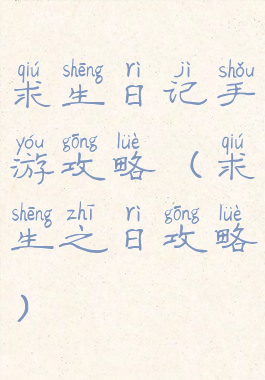 qiú shēng rì jì shǒu
求生日记手
yóu gōng lüè qiú
游攻略(求
shēng zhī rì gōng lüè
生之日攻略
)